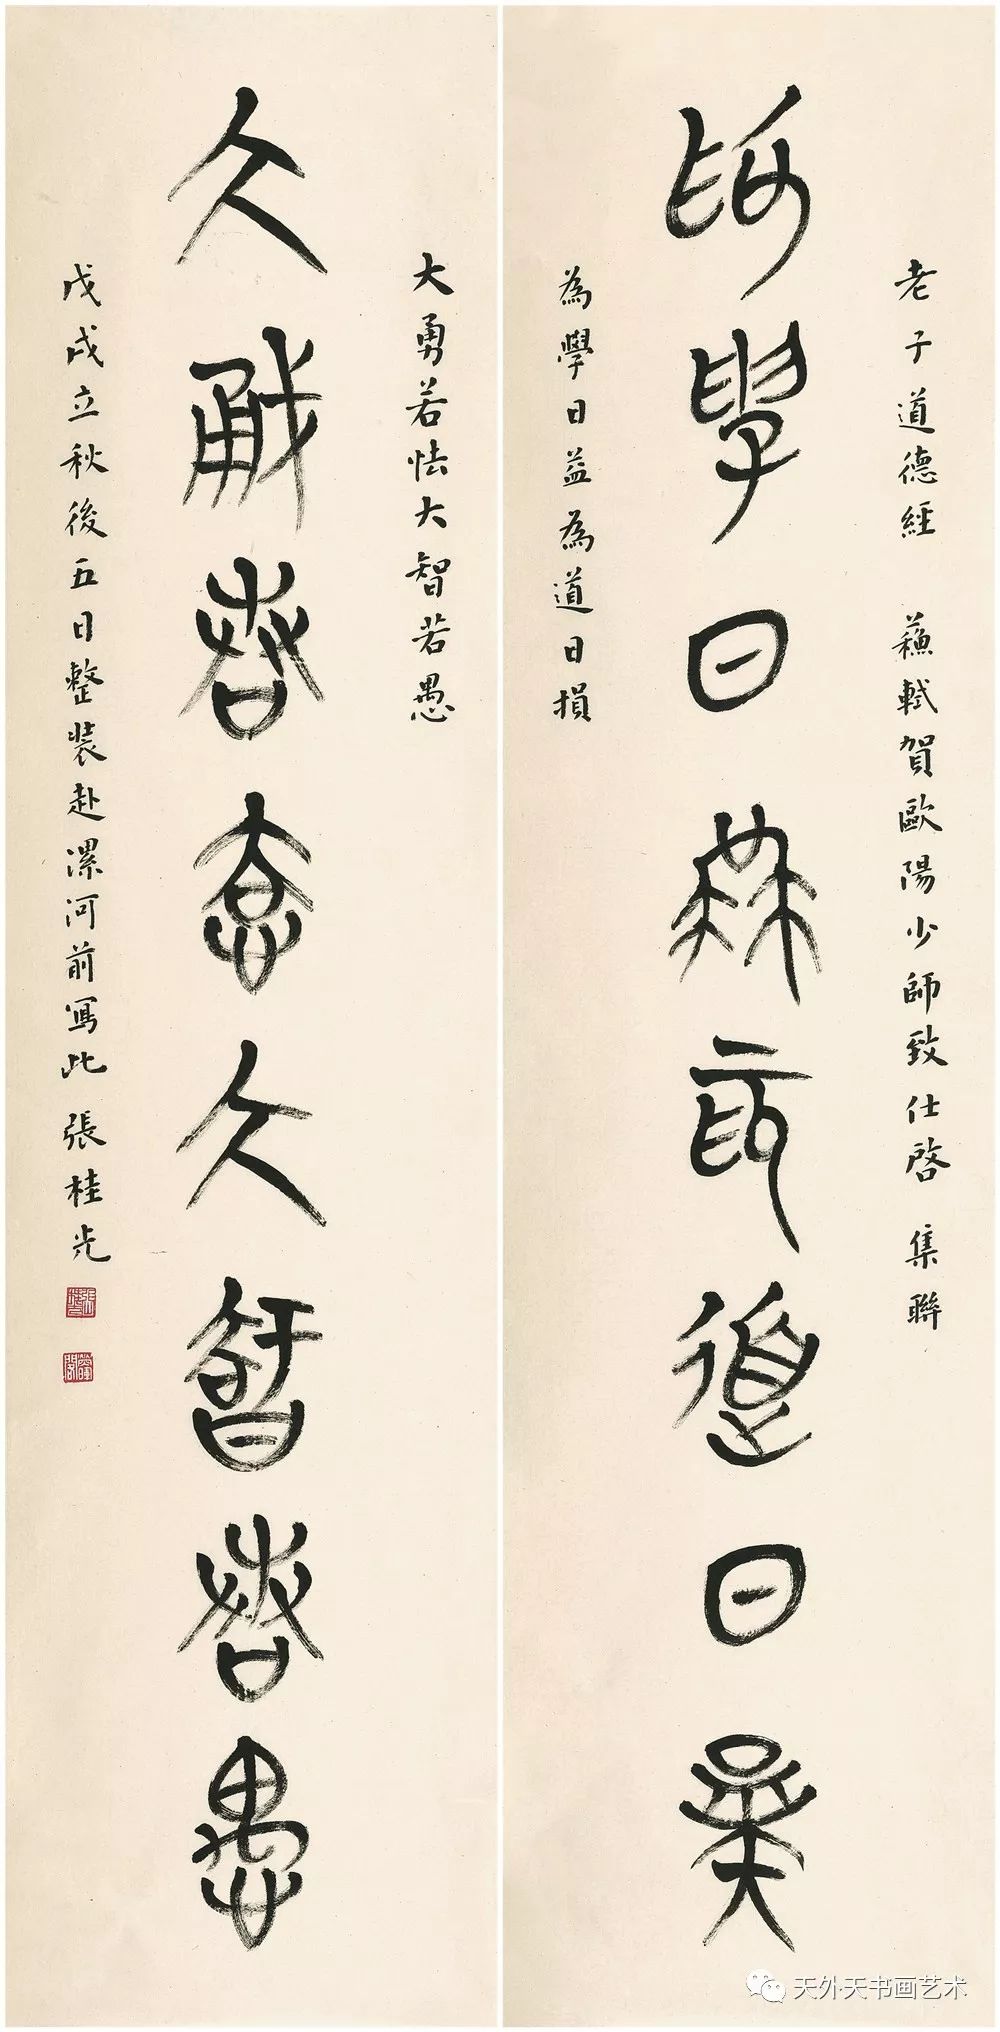 老子道德經 蘇軾賀歐陽少師致仕啓 集聯
為學日益為道日損
為學日益為道日損
大勇若怯大智若愚
大勇若怯大智若愚
戊戌立秋後五日整裝赴漯河前寫此 張桂光
天外天书画艺术